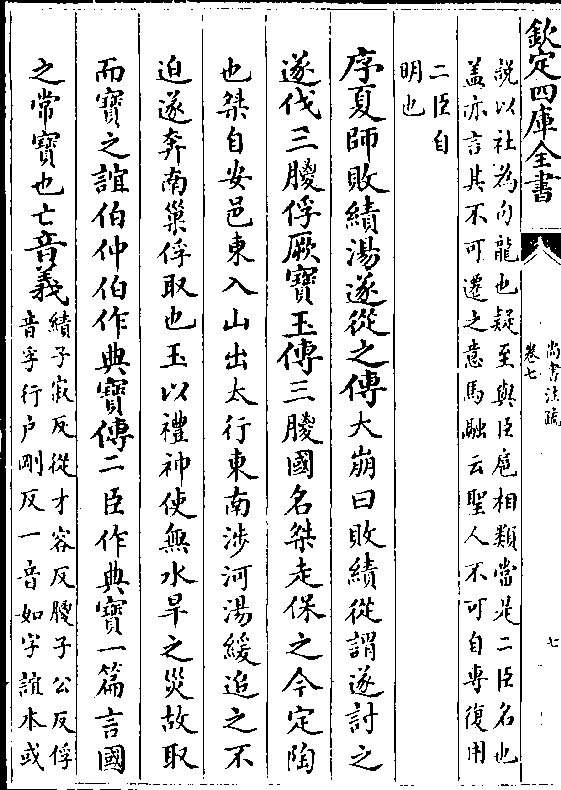 欽定四庫全書
尚書注疏
卷七
七
說以社為句龍也疑至與臣扈相類當是二臣名也
盖亦言其不可遷之意馬融云聖人不可自專復用
二臣自
明也
序夏師敗績湯遂從之傳大崩曰敗績從謂遂討之
遂伐三朡俘厥寶玉傳三朡國名桀走保之今定陶
也桀自安邑東入山出太行東南涉河湯緩追之不
迫遂奔南巢俘取也玉以禮神使無水旱之災故取
而寶之誼伯仲伯作典寶傳二臣作典寶一篇言國
之常寶也亡音義
績子寂反從才容反朡子公反俘
音孚行戶剛反一音如字誼本或